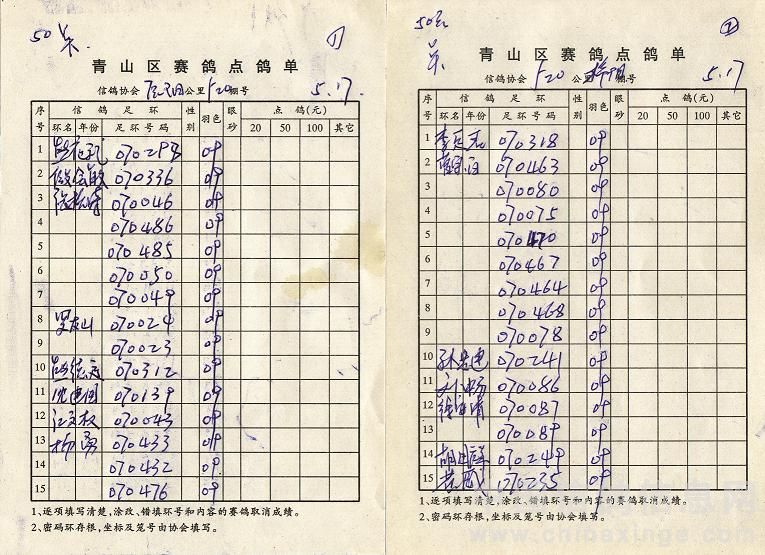 50
①
青山区赛鸽点鸽单
信鸽协会 公里 120 棚号 5.17.
序号 信鸽足环 性别 羽色 眼砂 点鸽(元)
环名 年份 足环号码 20 50 100 其它
1 070298 09
2 070336 09
3 070046 09
4 070486 09
5 070485 09
6 070050 09
7 070049 09
8 070024 09
9 070023 09
10 070312 09
11 070139 09
12 江文权 070043 09
13 杨勇 070433 09
14 070432 09
15 070476 09
1、逐项填写清楚,涂改、错填环号和内容的赛鸽取消成绩。
2、密码环存根,坐标及笼号由协会填写。
50
②
青山区赛鸽点鸽单
信鸽协会 120 公里 棚号 5.17
序号 信鸽足环 性别 羽色 眼砂 点鸽(元)
环名 年份 足环号码 20 50 100 其它
1 070318 09
2 070463 09
3 070080 09
4 070075 09
5 070470 09
6 070467 09
7 070464 09
8 070468 09
9 070078 09
10 070241 09
11 刘畅 070086 09
12 070087 09
13 070089 09
14 070249 09
15 070235 09
1、逐项填写清楚,涂改、错填环号和内容的赛鸽取消成绩。
2、密码环存根,坐标及笼号由协会填写。
www.chinaxinge.com